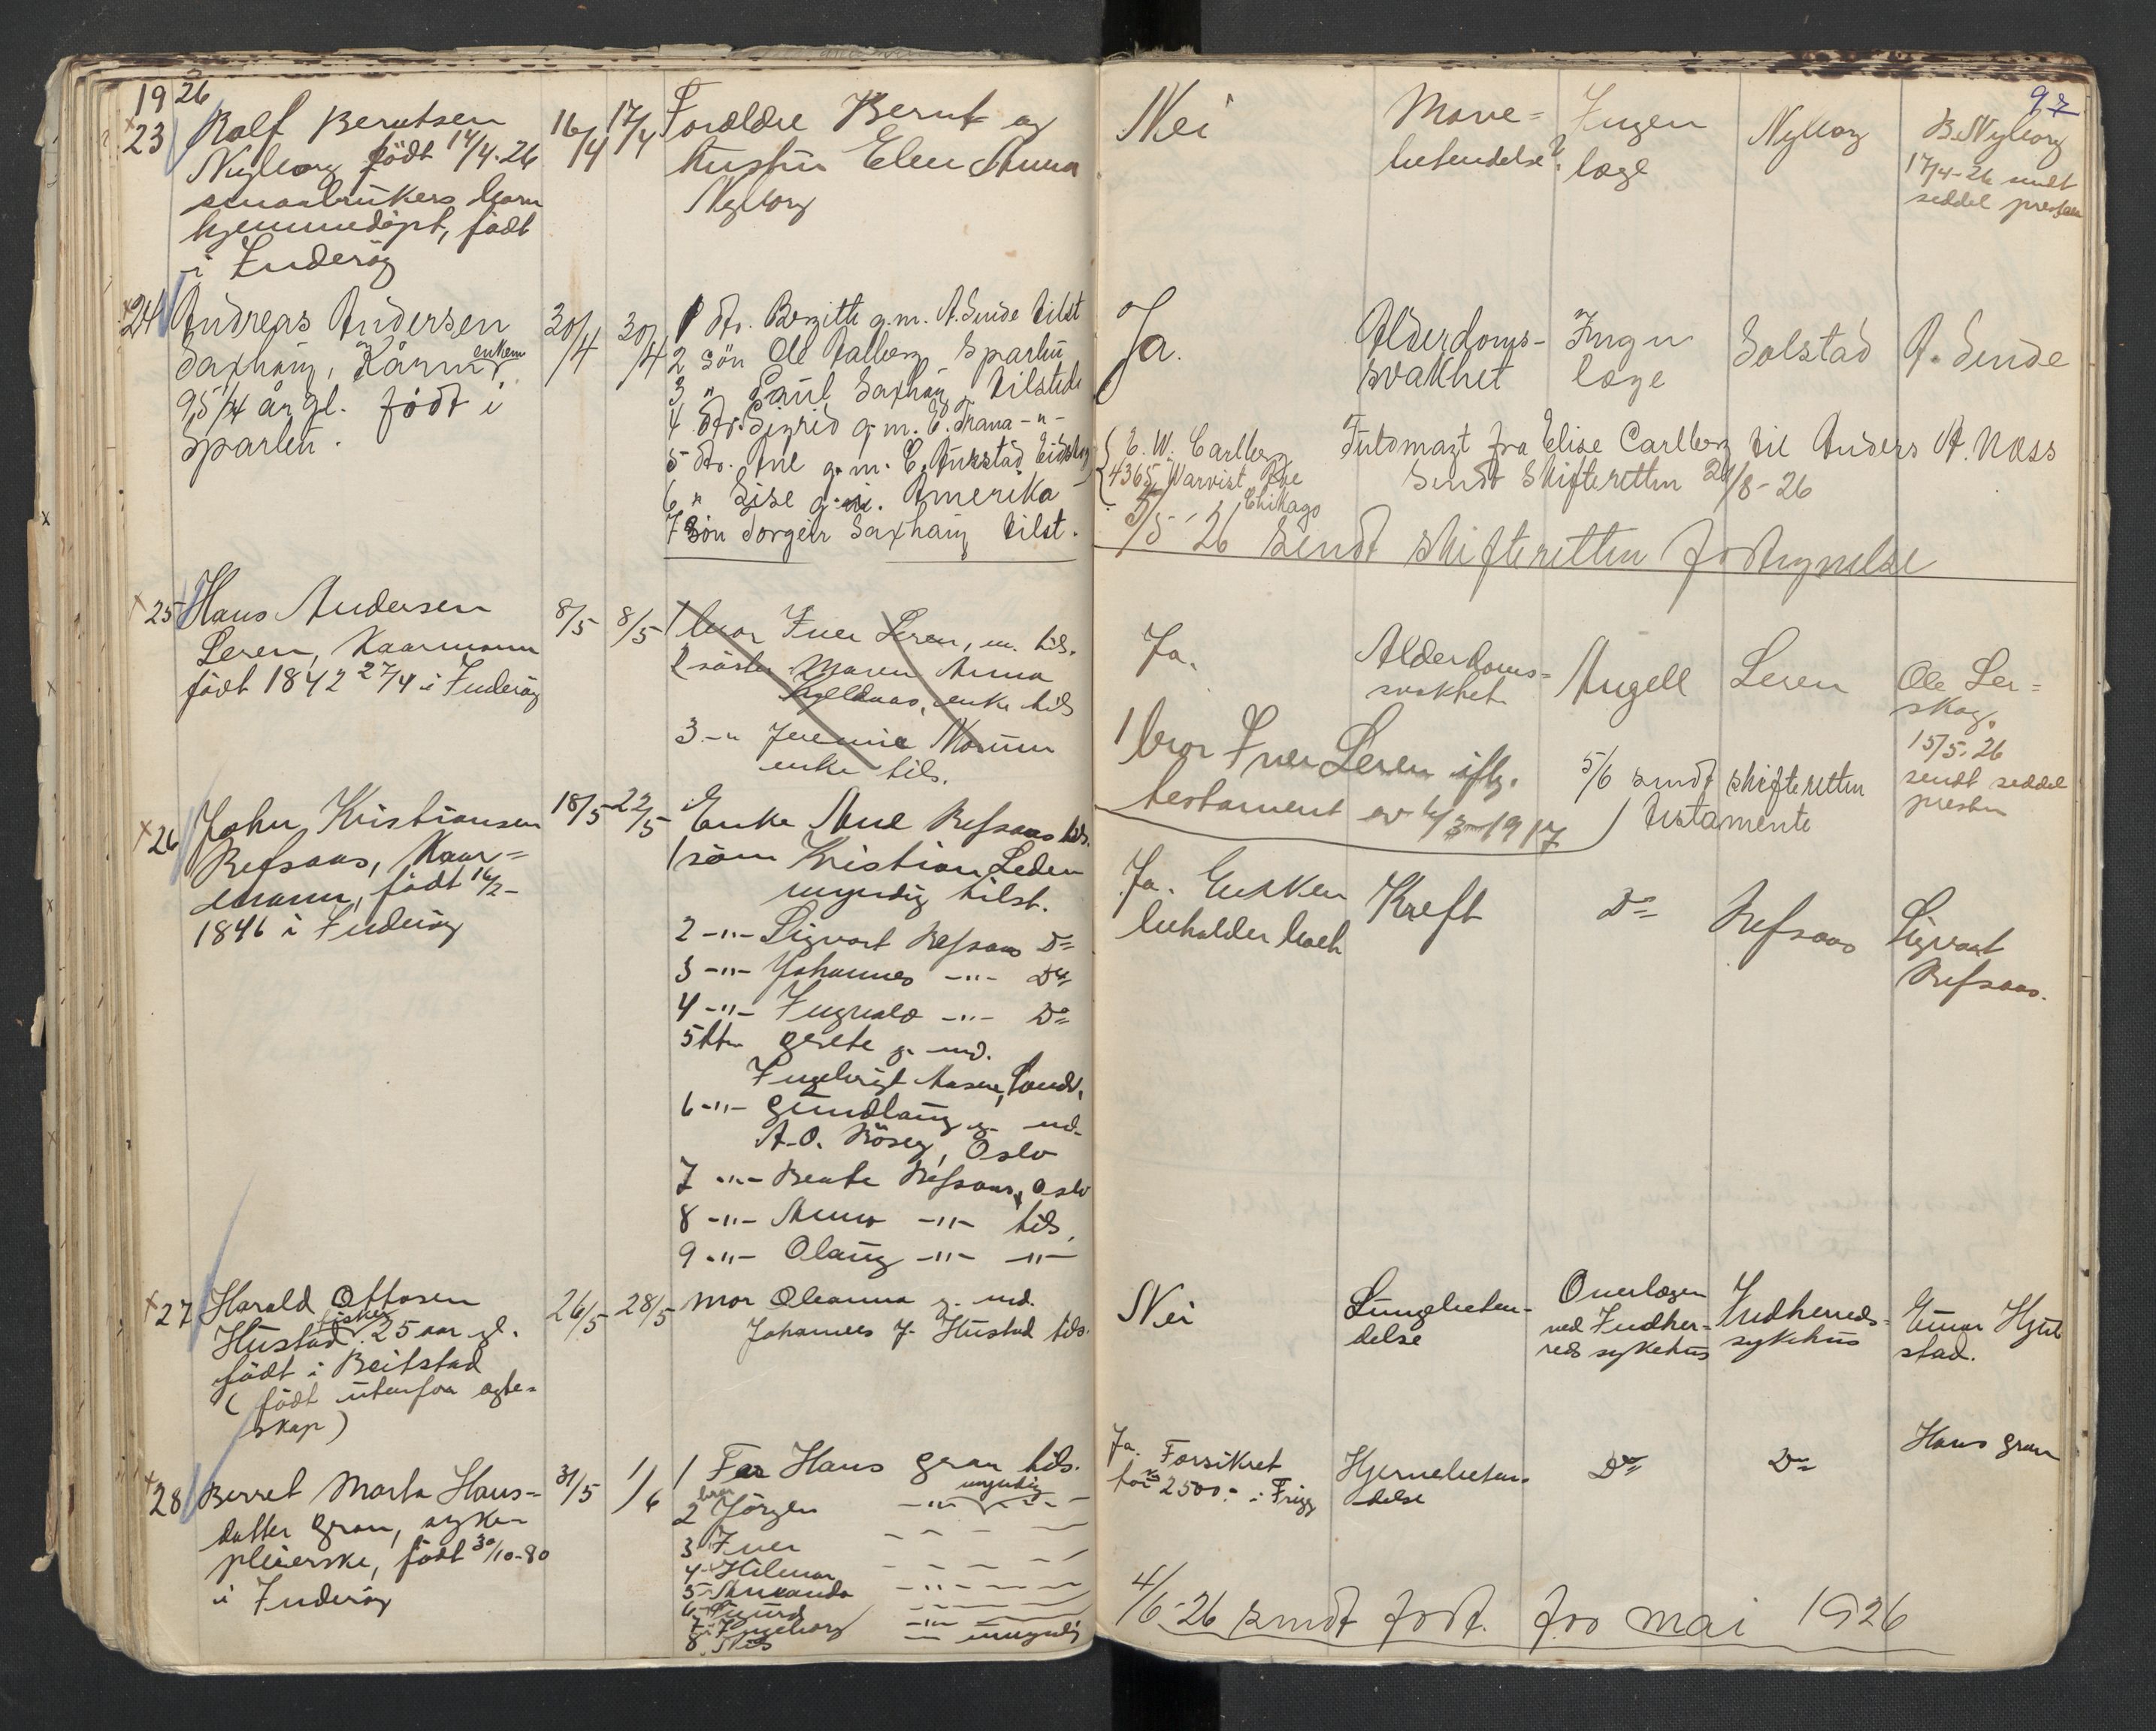 1926
23 Rolf Berntsen
Nyborg født 14/4-26
smaabrukers barn
hjemmedöpt, födt
i Inderöy
16/4 17/4
Forældre Bernt og
hustru Elen Anna
Nyborg
Nei
Mave=
betendelse?
Ingen
læge
Nyborg
97
B. Nyborg
17/4-26 sendt
seddel presten
24 Andreas Andersen
Saxhaug, Kårm. enkem
95 1/4 år gl. født i
Sparbu.
30/4 30/4
1 dtr. Bergitte g.m. A. Sende tilst
2 sön Ole Dalberg Sparbu
3 " Paul Saxhaug tilstede
4 dtr. Sigrid g.m. E. Trana -"-
5 dtr. Ane g.m. C. Aukstad
6 " Lise g.m. Amerika
7 Sön Torgeir Saxhaug tilst.
Ja.
Alderdoms-
svakhet
Ingen
læge
Solstad
A. Sende
E. W. Carlberg
4365 Warvist Ave
Chikago
Fuldmagt fra Elise Carlberg til Anders A. Næss
Sendt Skifteretten 24/8-26
5/5-26 Sendt skifteretten
25 Hans Andersen
Leren, Kaarmann
födt 1842 27/4 i Inderöy
8/5 8/5
1 bror Iver Leren, m. tils.
2 söster Maren Anna
enke tils
3 -"- Jeremie Norum
enke tils.
Ja.
Alderdoms=
svakhet
Angell
Leren
Ole Ler=
skag.
15/5.26
sendt seddel
presten
1 bror Iver Leren iflg.
testament av 4/3-1917
5/6 sendt skifteretten
testamente
26 John Kristiansen
Refsaas, Kaar=
mann, födt 16/2-
1846 i Inderöy
18/5 22/5
Enke Ane Refsaas tils.
1 sönn Kristian Leden
myndig tilst.
2 -"- Sigvart Refsaas Do
3 -"- Johannes -"- Do
4 -"- Ingvald -"- Do
5 dtr gjerte g. md.
Ingebrigt Aasen, Sandv.
6 -"- gundlaug g. md.
A.O. Röseg, Oslo
7 -"- Beate Refsaas, Oslo
8 -"- Anna -"- tils.
9 -"- Olaug -"- -"-
Ja. Enken
beholder boet
Kreft
Do
Refsaas
Sigvart
Refsaas.
27 Harald Ottosen
Hustad. fisker 25 aar gl.
födt i Beitstad
(födt utenfor ægte=
skap)
26/5 28/5
Mor Oleanna g. md.
Johannes J. Hustad tils.
Nei
Lungebeten-
delse
Overlægen
ved Indher-
reds sykehus
Indherreds-
sykehus
Einar Hju
stad.
28 Berret Marta Hans-
datter gran, syke-
pleierske, födt 30/10-80
i Inderöy
31/5 1/6
1 Far Hans gran tils.
2 bror Jörgen -"- myndig
3 Iver
4 Hilmar
5 Amanda
6 Sigurd
7 Ingeborg
8 Nils umyndig
Ja. Forsikret
for kr 2500.- i Frigg
Hjernebeten-
delse
Do
Do
Hans gran
4/6-26 sendt fort. for mai 1926